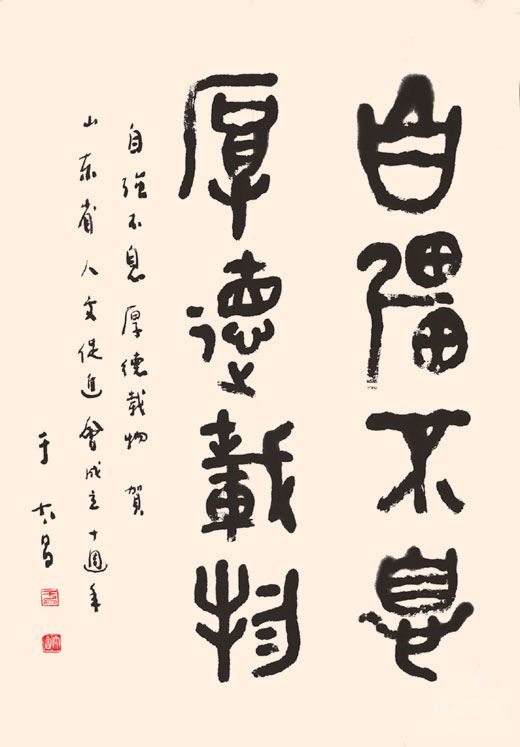 自彊不息
厚德載物
自強不息厚德載物 賀
山東省人文促進會成立十週年
于太昌